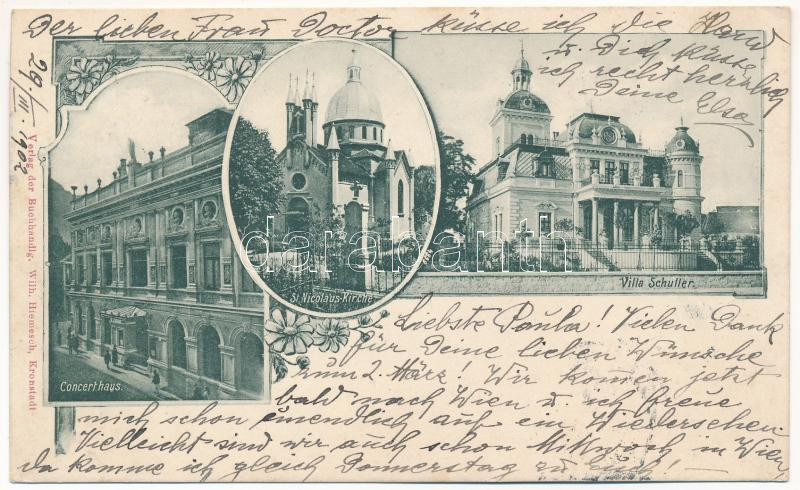 Der lieben Frau Doctor küsse ich die Hand
u. Dich küsse
ich recht herzlich
Deine Elsa
29./III. 1902
Verlag der Buchhandlg. Wilh. Hiemesch, Kronstadt
darabanth
Concerthaus.
St Nicolaus-Kirche
Villa Schuller.
Liebste Paula! Vielen Dank
für Deine lieben Wünsche
zum 2. März! Wir komen jetzt
bald nach Wien u. ich freue
mich schon unendlich auf ein Wiedersehen
Vielleicht sind wir auch schon Mittwoch in Wien,
da komme ich gleich Donnerstag zu Euch! –